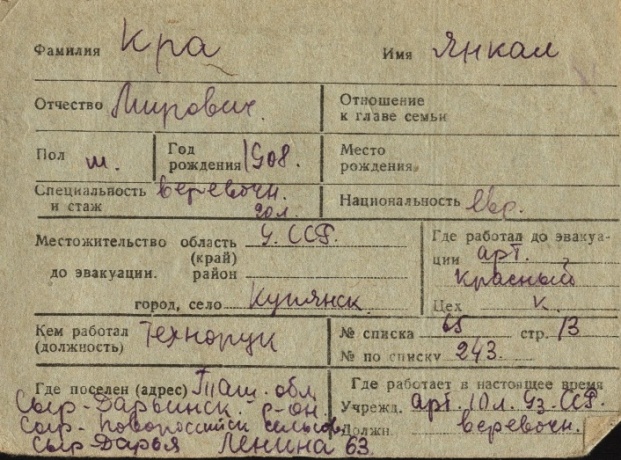 Фамилия Кра Имя Янкал
Отчество Мирович. Отношение к главе семьи
Пол м. Год рождения 1908. Место рождения
Специальность и стаж веревочн. 20 л. Национальность Евр.
Местожительство до эвакуации. область (край) У. ССР. район
город, село Купянск.
Где работал до эвакуации арт. Красный
Цех К.
Кем работал (должность) Технорук № списка 65 стр. 13
№ по списку 243.
Где поселен (адрес) Таш. обл
Сыр-Дарьинск. р-он.
Сыр-Новороссийск сельсов.
Сыр Дарья Ленина 63.
Где работает в настоящее время
Учрежд. арт. 10 л. Уз. ССР.
Должн. веревочн.